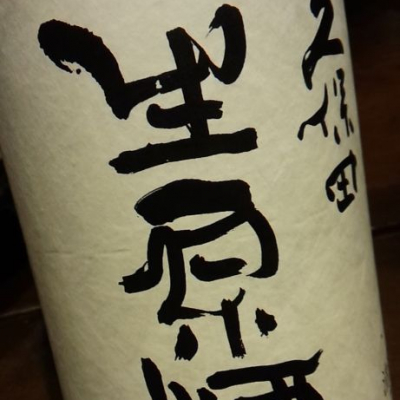 久保田
生原酒